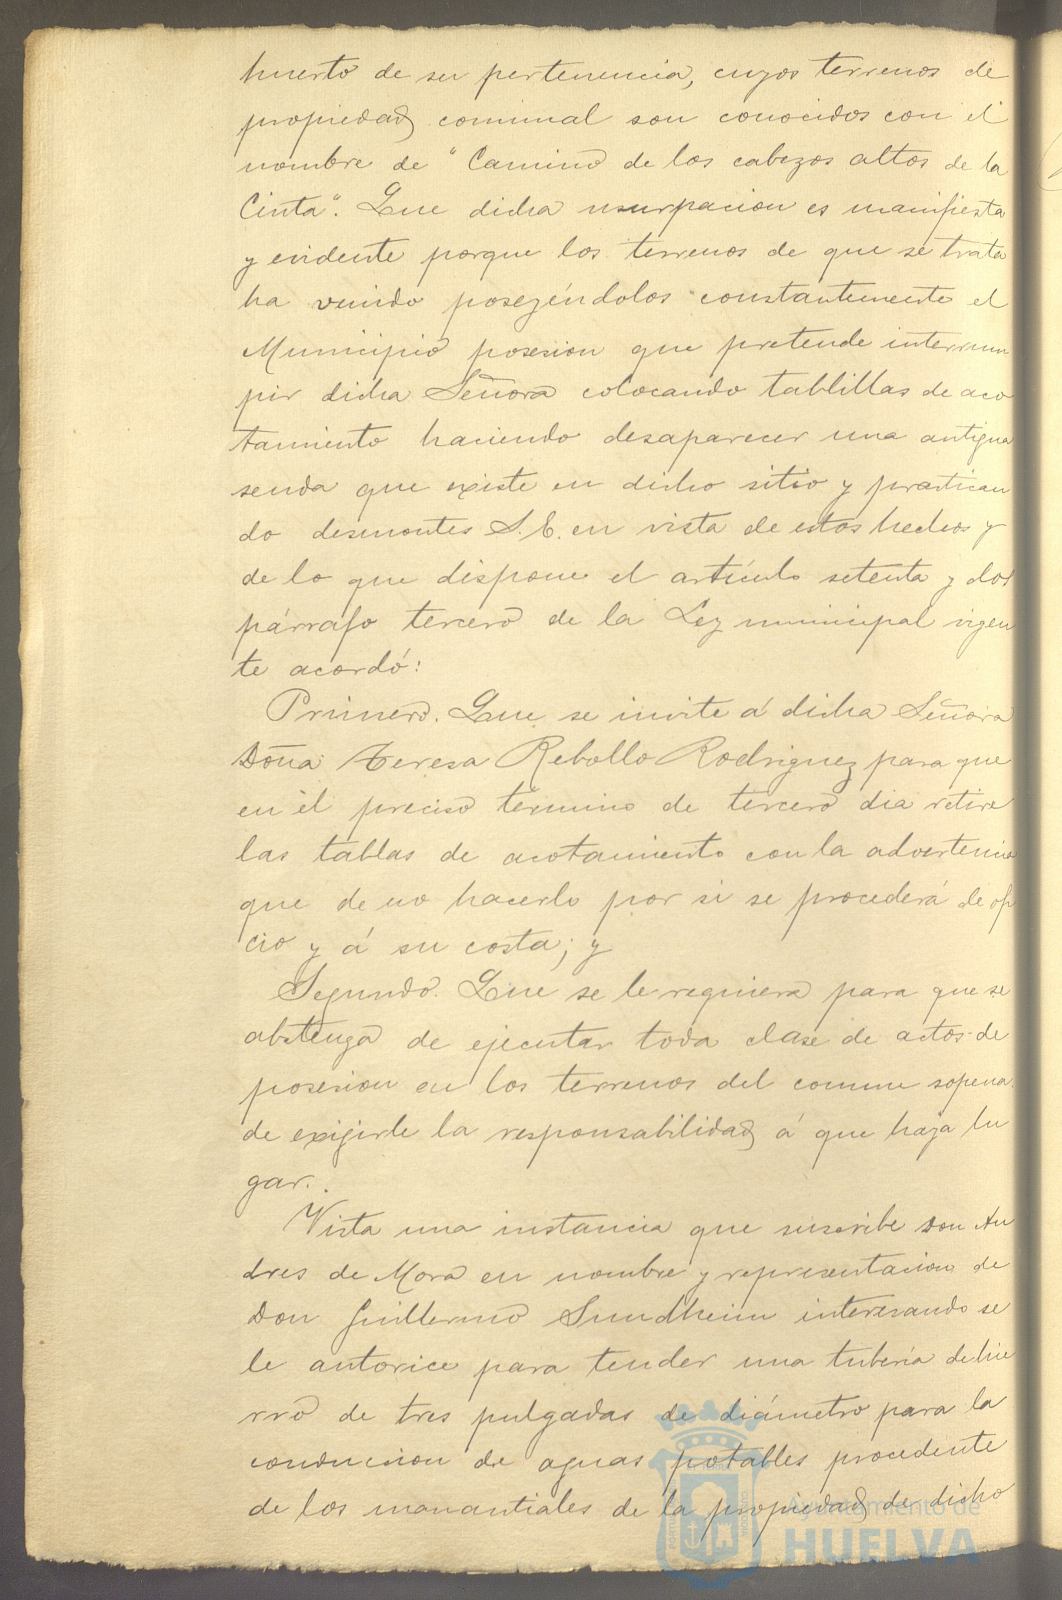 huerto de su pertenencia, cuyos terrenos de
propiedad comunal son conocidos con el
nombre de "Camino de los cabezos altos de la
Cinta". Que dicha usurpacion es manifiesta
y evidente porque los terrenos de que se trata
ha venido poseyéndolos constantemente el
Municipio posesion que pretende interrum
pir dicha Señora colocando tablillas de aco
tamiento haciendo desaparecer una antigua
senda que existe en dicho sitio y practican
do desmontes S. E. en vista de estos hechos y
de lo que dispone el artículo setenta y dos
párrafo tercero de la Ley municipal vigen
te acordó:
Primero. Que se invite á dicha Señora
Doña Teresa Rebollo Rodriguez para que
en el preciso término de tercero dia retire
las tablas de acotamiento con la advertencia
que de no hacerlo por si se procederá de ofi
cio y á su costa; y
Segundo. Que se le requiera para que se
abstenga de ejecutar toda clase de actos de
posesion en los terrenos del comun sopena
de exigirle la responsabilidad á que haya lu
gar.
Vista una instancia que suscribe Don An
dres de Mora en nombre y representacion de
Don Guillermo Sundheim interesando se
le autorice para tender una tuberia de hie
rro de tres pulgadas de diámetro para la
conduccion de aguas potables procedente
de los manantiales de la propiedad de dicho
Ayuntamiento de
HUELVA